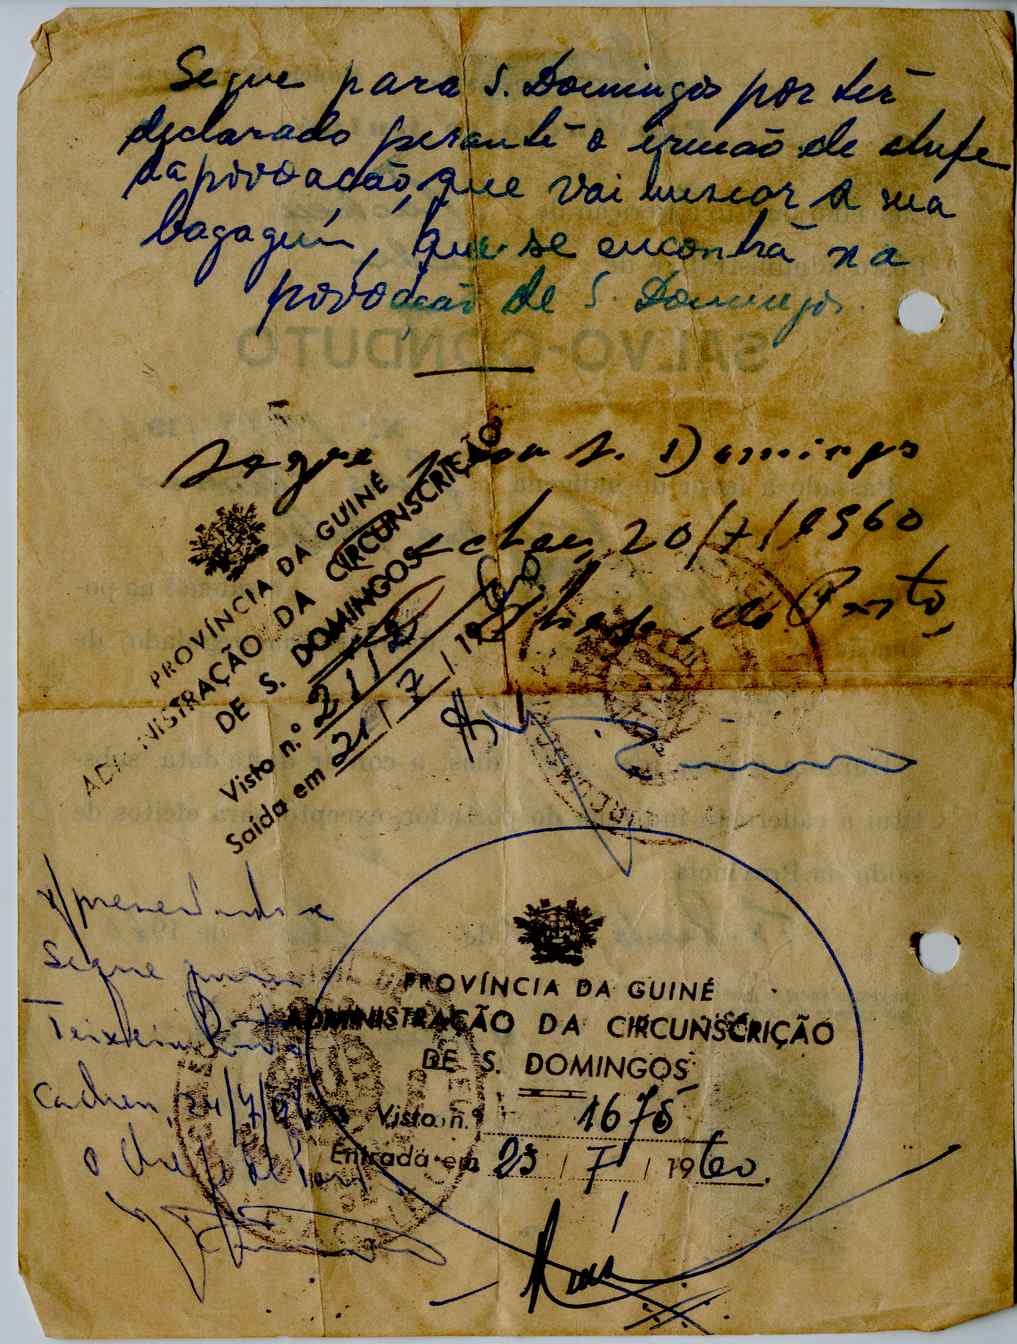 Segue para S. Domingos por ter
declarado perante o irmão de chefe
da povoação, que vai buscar a sua
bagagem, que se encontra na
povoação de S. Domingos.
SALVO-CONDUTO
Segue para S. Domingos
Cacheu, 20/7/1960
O Chefe do Posto,
PROVÍNCIA DA GUINÉ
ADMINISTRAÇÃO DA CIRCUNSCRIÇÃO
DE S. DOMINGOS
Visto n.º 2118
Saída em 21/7/1960
Apresentado e
Segue para
Teixeira Pinto
Cacheu, 24/7/960
O Chefe de Posto
PROVÍNCIA DA GUINÉ
ADMINISTRAÇÃO DA CIRCUNSCRIÇÃO
DE S. DOMINGOS
Visto n.º 1675
Entrada em 23/7/1960.